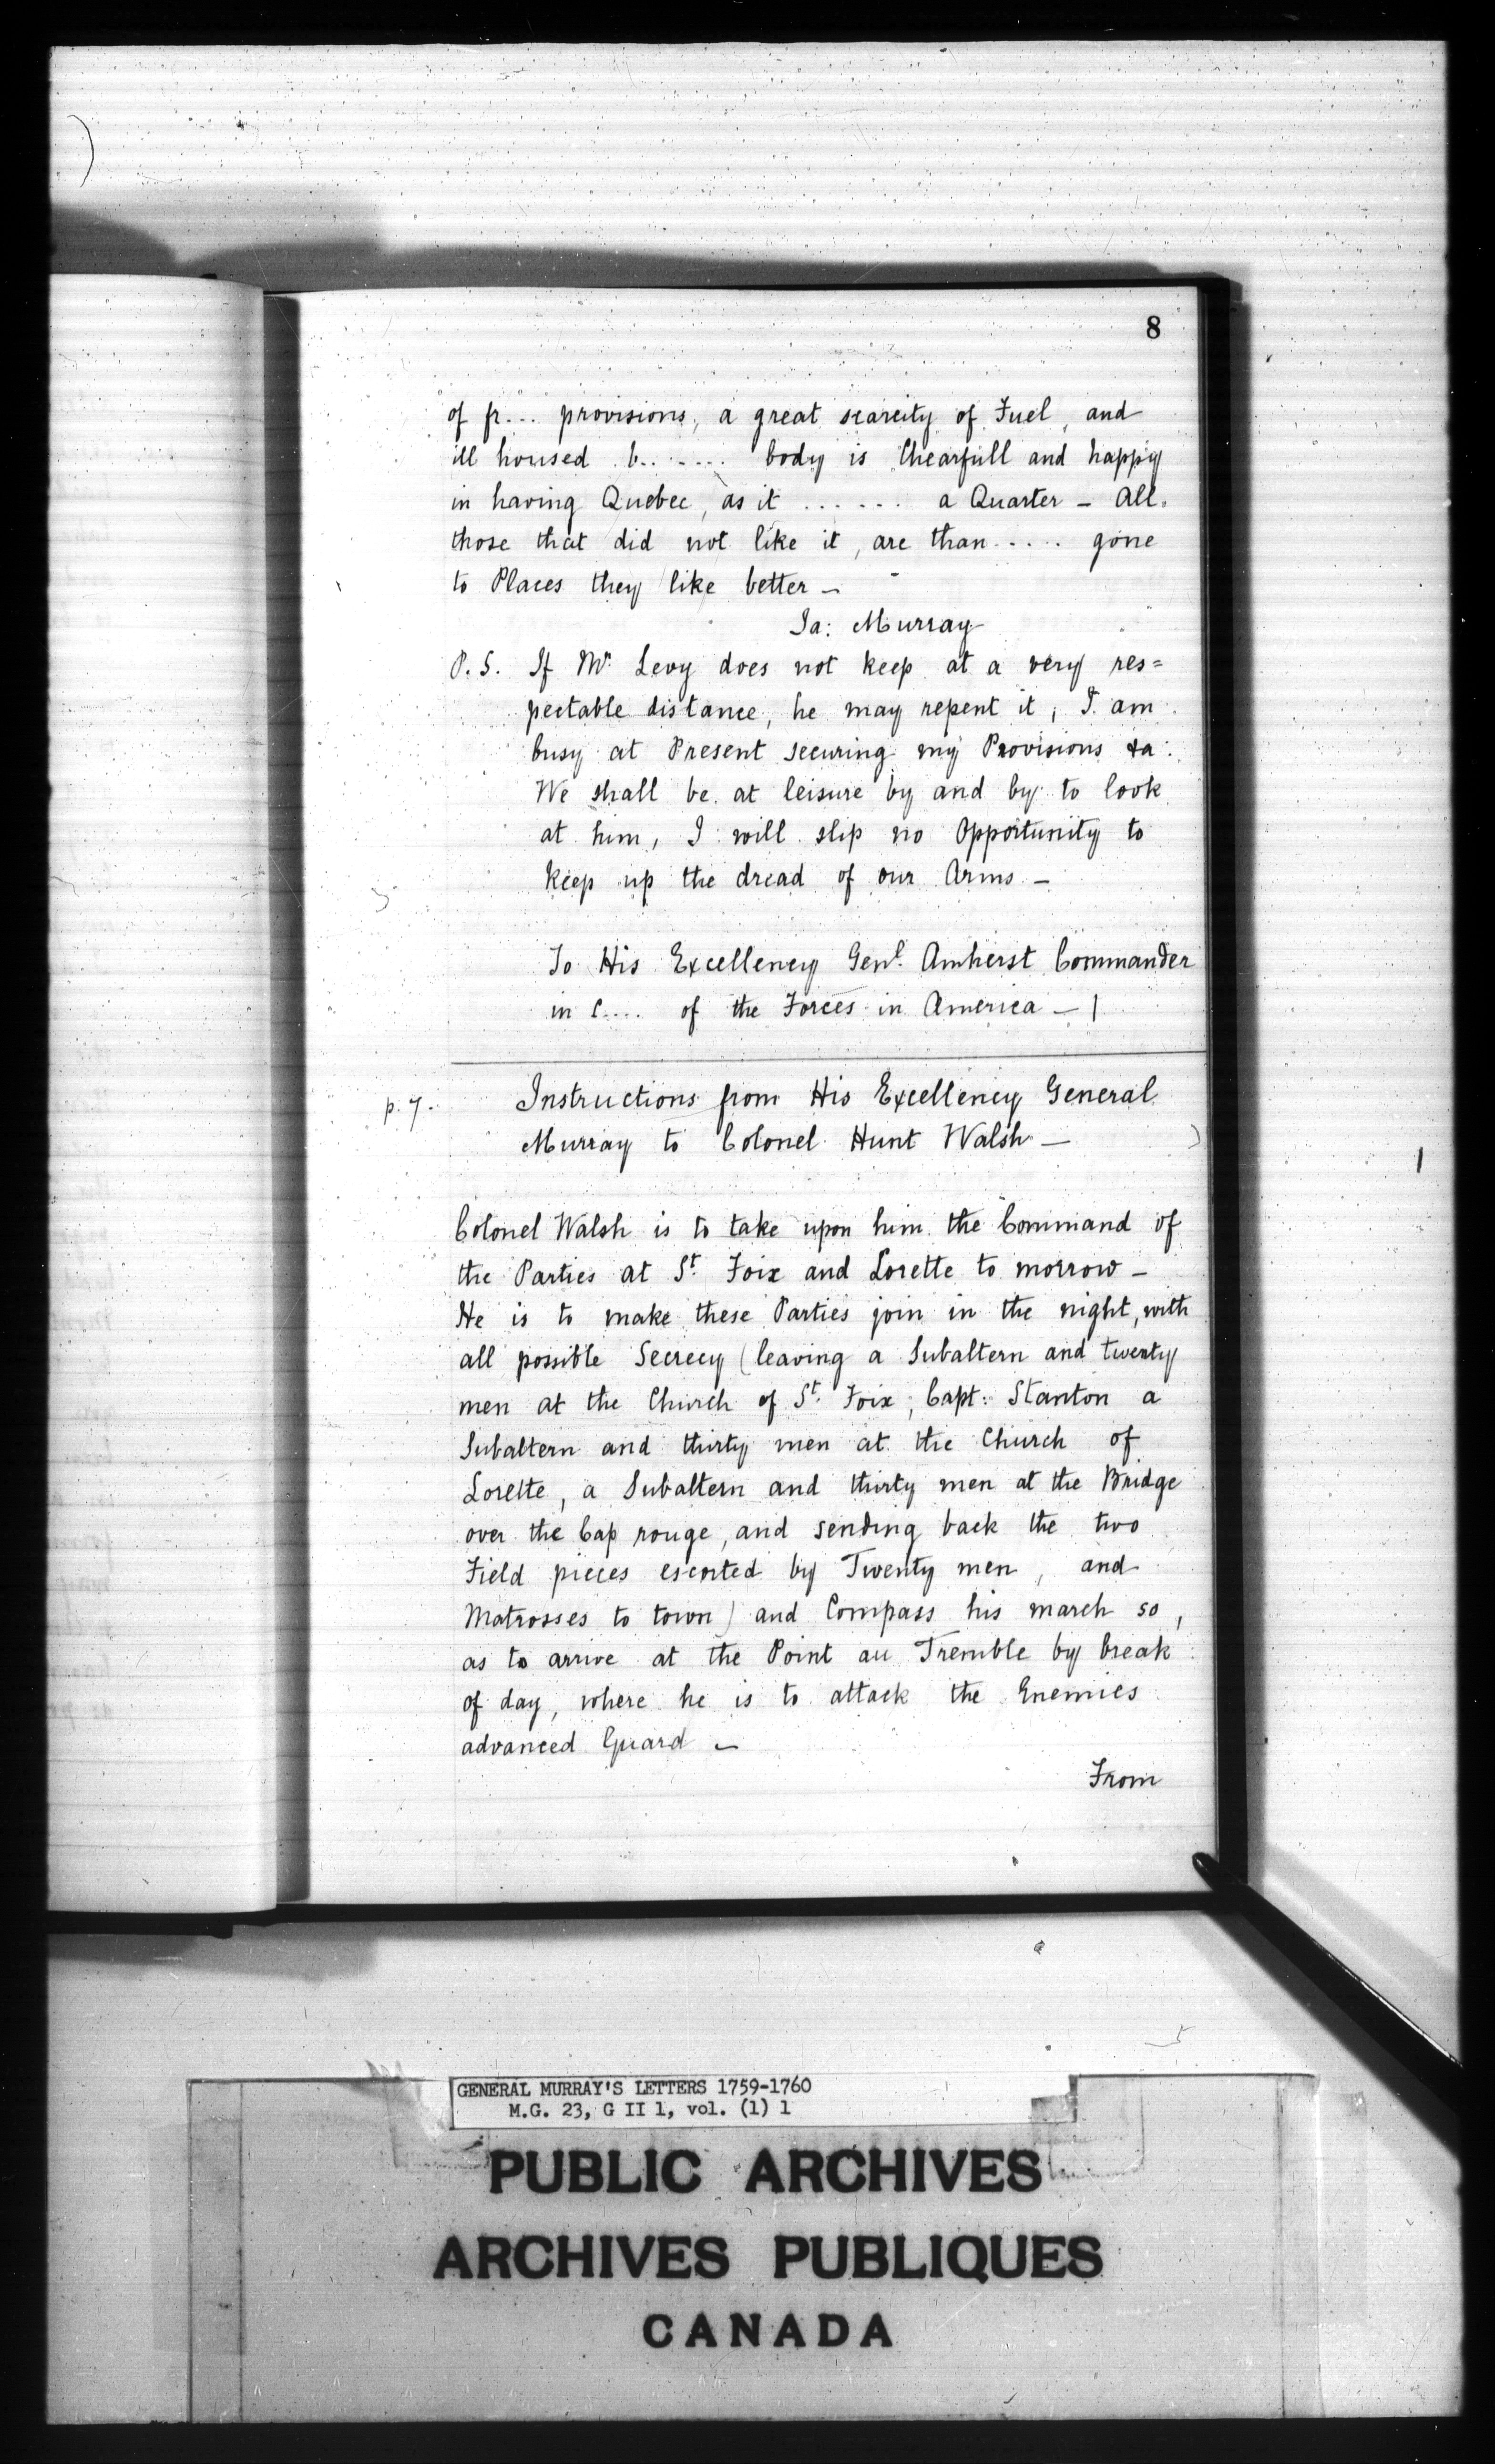 8
of fr... provisions, a great scarcity of Fuel, and
ill housed b....... body is Chearfull and happy
in having Quebec, as it ...... a Quarter - All
those that did not like it, are than..... gone
to Places they like better -
Ja: Murray
P.S. If Mr. Levy does not keep at a very res=
pectable distance, he may repent it, I am
busy at Present securing my Provisions &a:
We shall be at leisure by and by to look
at him, I will slip no Opportunity to
keep up the dread of our Arms -
To His Excellency Genl. Amherst Commander
in C.... of the Forces in America - |
p. 7.
Instructions from His Excellency General
Murray to Colonel Hunt Walsh -
Colonel Walsh is to take upon him the Command of
the Parties at St. Foix and Lorette to morrow -
He is to make these Parties join in the night, with
all possible Secrecy (leaving a Subaltern and twenty
men at the Church of St. Foix, Capt: Stanton a
Subaltern and thirty men at the Church of
Lorette, a Subaltern and thirty men at the Bridge
over the Cap rouge, and sending back the two
Field pieces escorted by Twenty men, and
Matrosses to town) and Compass his march so,
as to arrive at the Point au Tremble by break
of day, where he is to attack the Enemies
advanced Guard -
From
GENERAL MURRAY'S LETTERS 1759-1760
M.G. 23, G II 1, vol. (1) 1
PUBLIC ARCHIVES
ARCHIVES PUBLIQUES
CANADA